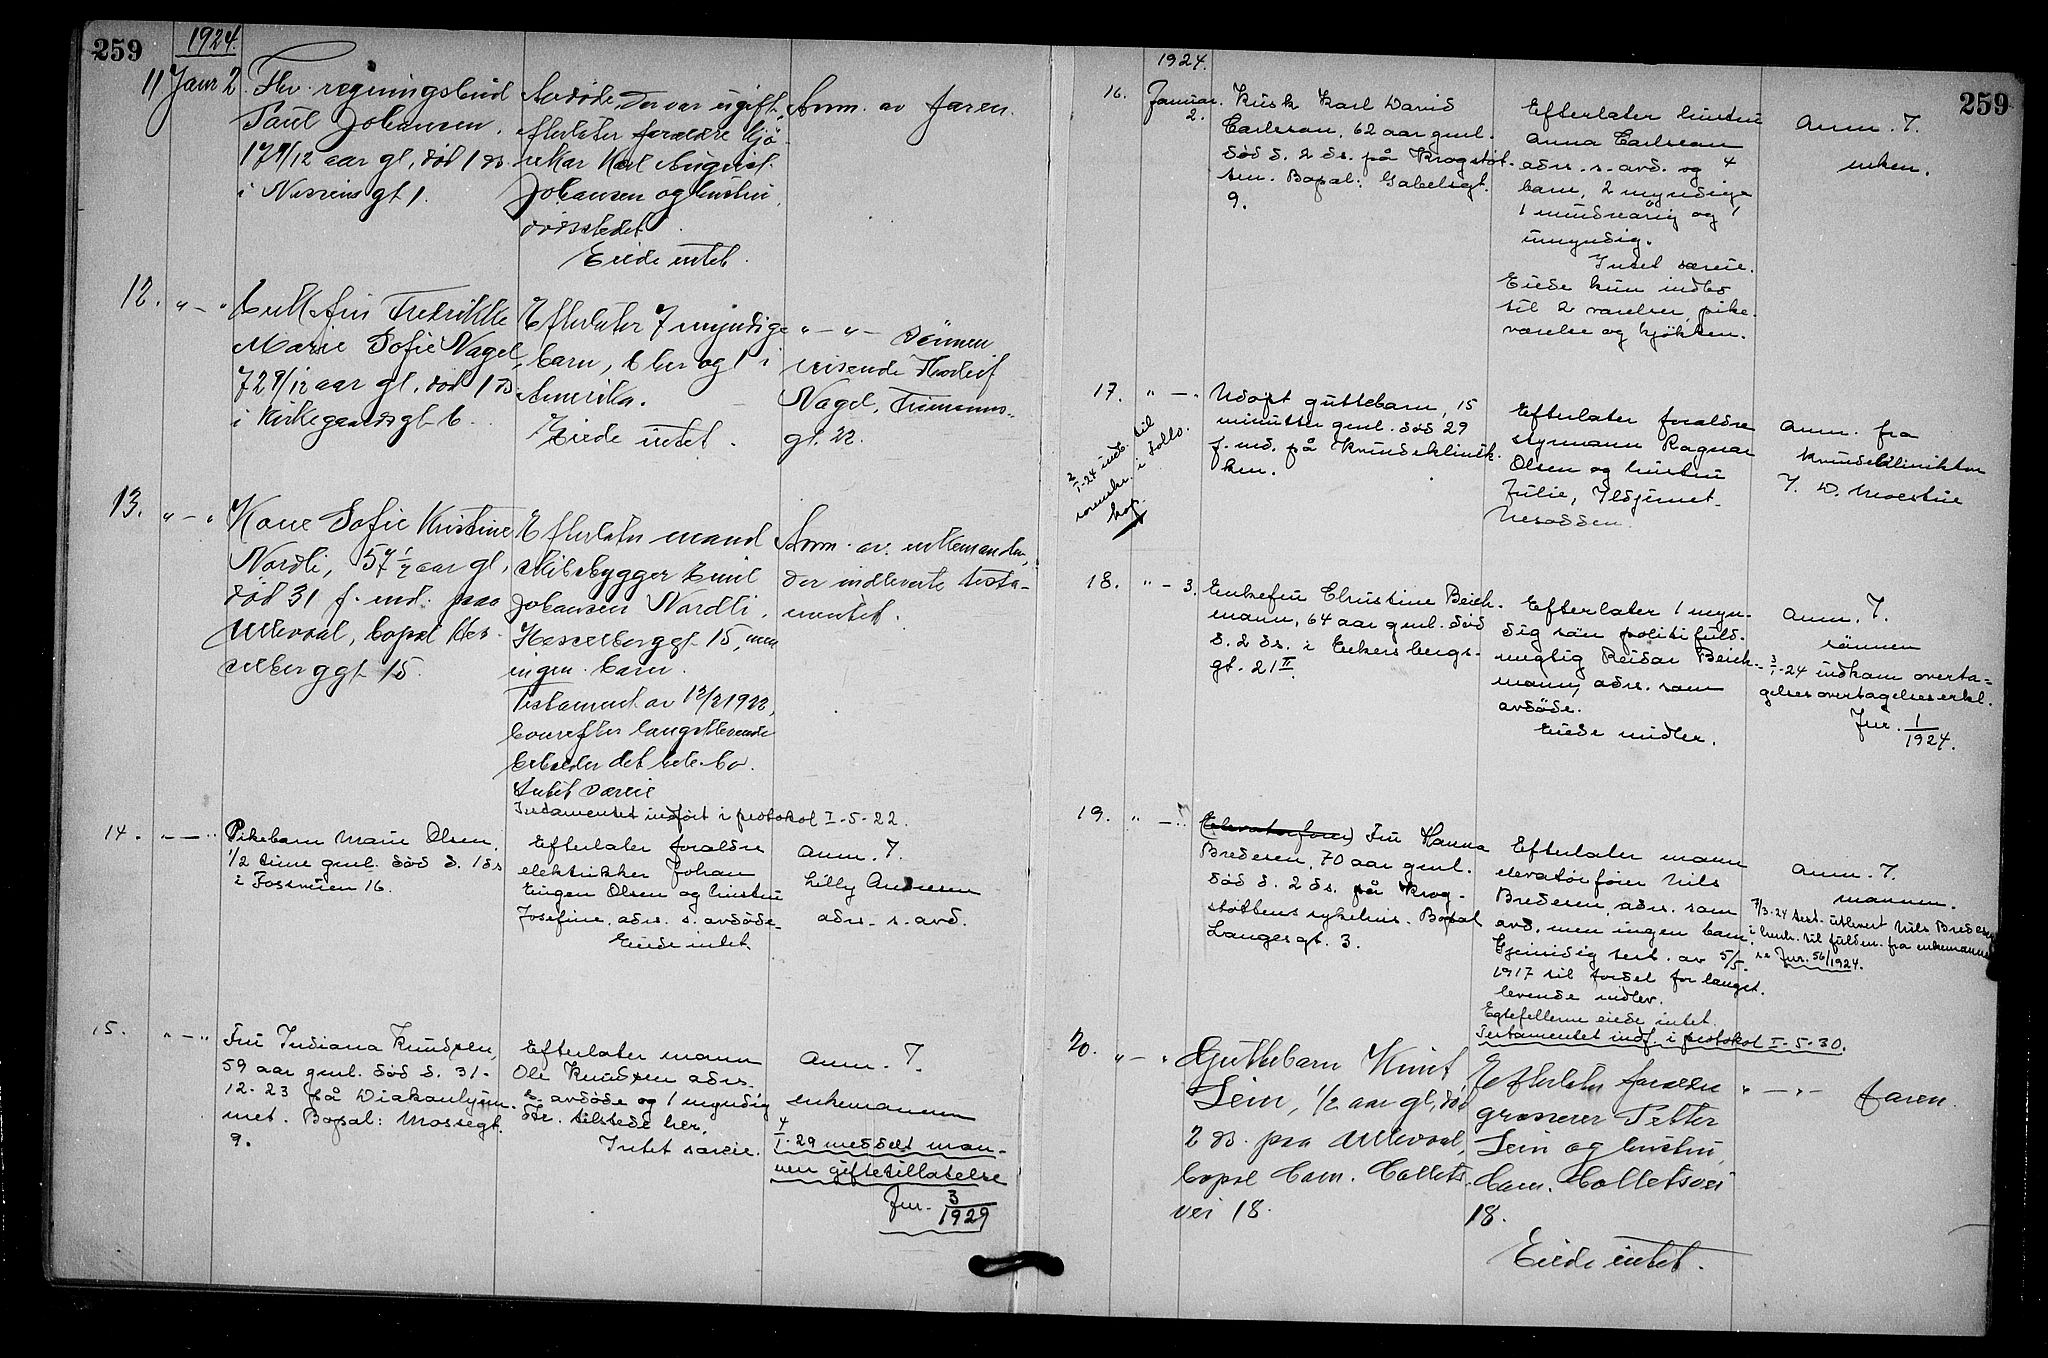 259
1924.
11 Janr 2. Fhv. regningsbud
Paul Johansen.
17 9/12 aar gl, død 1 ds
i Nissensgt 1.
Avdøde, der var ugift,
efterlater forældre kjø-
rekar Karl August
Johansen og hustru,
dødsstedet
Eiede intet.
Anm. av faren.
12. " — " Enkefru Fredrikke
Marie Sofie Nagel
72 9/12 aar gl, død 1 ds
i Kirkegaardsgt 6.
Efterlater 7 myndige
barn, 6 her og 1 i
Amerika.
Eiede intet.
" — " — sönnen
reisende
Nagel,
gt. 22.
13. " — " Kone Sofie Kristine
Nordli, 57 1/2 aar gl,
død 31 f. md. paa
Ullevaal, bopæl Hes-
selberggt 15.
Efterlater mand
skibsbygger Emil
Johansen Nordli,
Hesselberggt 15, men
ingen barn.
Testament av 12/2 1922,
hvorefter længstlevende
beholder det hele bo.
Intet særeie
Testamentet indført i protokol I-5-22.
Anm. av enkemanden,
der indleverte testa-
mentet.
14. " — " Pikebarn Marie Olsen,
1/2 time gml. död d. 1 ds
i Fossveien 16.
Efterlater foraldre
elektrikker Johan
Eugen Olsen og hustru
Josefine, adrs. s. avdöde.
Eiede intet.
Anm. T.
Lilly Andresen
adrs. s. avd.
15. " — " Fru Indiana Knudsen,
59 aar gml. död d. 31-
12-23 på Diakonhjem-
met. Bopal: Mossegt.
9.
Efterlater mann
Ole Knudsen adrs.
s. avdöde og 1 myndig
dtr. tilstede her.
Intet særeie.
Anm. T.
enkemannen
4/I-29 meddelt man-
nen giftetillatelse
Jnr. 3/1929
1924.
259
16. Januar 2. Kusk Karl David
Carlsson, 62 aar gml.
död d. 2 ds. på Krogstöt-
ten. Bopal: Gabelsgt.
9.
Efterlater hustru
Anna Carlsson
adrs. s. avd. og 4
barn, 2 myndige
1 mindreårig og 1
umyndig.
Intet særeie.
Eiede kun indbo
til 2 varelser, pike-
varelse og kjökken.
Anm. T.
enken.
17. " — " Udöpt guttebarn, 15
minutter gml. död 29
f. md. på Kvindeklinik-
ken.
2/I-24 indb. til
sorenskr. i Follo.
Efterlater foraldre
styrmann Ragnar
Olsen og hustru
Julie, Ildjernet
Nesodden.
Anm. fra
Kvindeklinikken
18. " — 3. Enkefru Christine Beich-
mann, 64 aar gml. död
d. 2 ds. i Eckersbergs-
gt. 21 II.
Efterlater 1 myn-
dig sön politifuld-
megtig Reidar Beich-
mann, adrs. som
avdöde.
Eiede midler.
Anm. T.
sönnen
3/I-24 indkom overta-
gelses overtagelseserkl.
Jnr. 1/1924.
19. " — " (Elevatorförer) Fru Hanna
Bredesen, 70 aar gml.
död d. 2 ds. på Krog-
stöttens sykehus. Bopal
Langesgt. 3.
Efterlater mann
elevatorförer Nils
Bredesen, adrs. som
avd. men ingen barn.
Gjensidig test. av 5/5-
1917 til fordel for langst-
levende indlev.
Egtefellerne eiede intet.
Testamentet indf. i protokol I-5-30.
Anm. T.
mannen.
7/3-24 test. utlevert Nils Bredesen
i henh. til fuldm. fra enkemannen
se Jnr. 56/1924.
20. " — " Guttebarn Knut
Lein, 1/2 aar gl, död
2 ds. paa Ullevaal,
bopæl Cam. Colletts
vei 18.
Efterlater forældre
grosserer Petter
Lein og hustru,
Cam. Colletsvei
18.
Eiede intet.
" — " — faren.